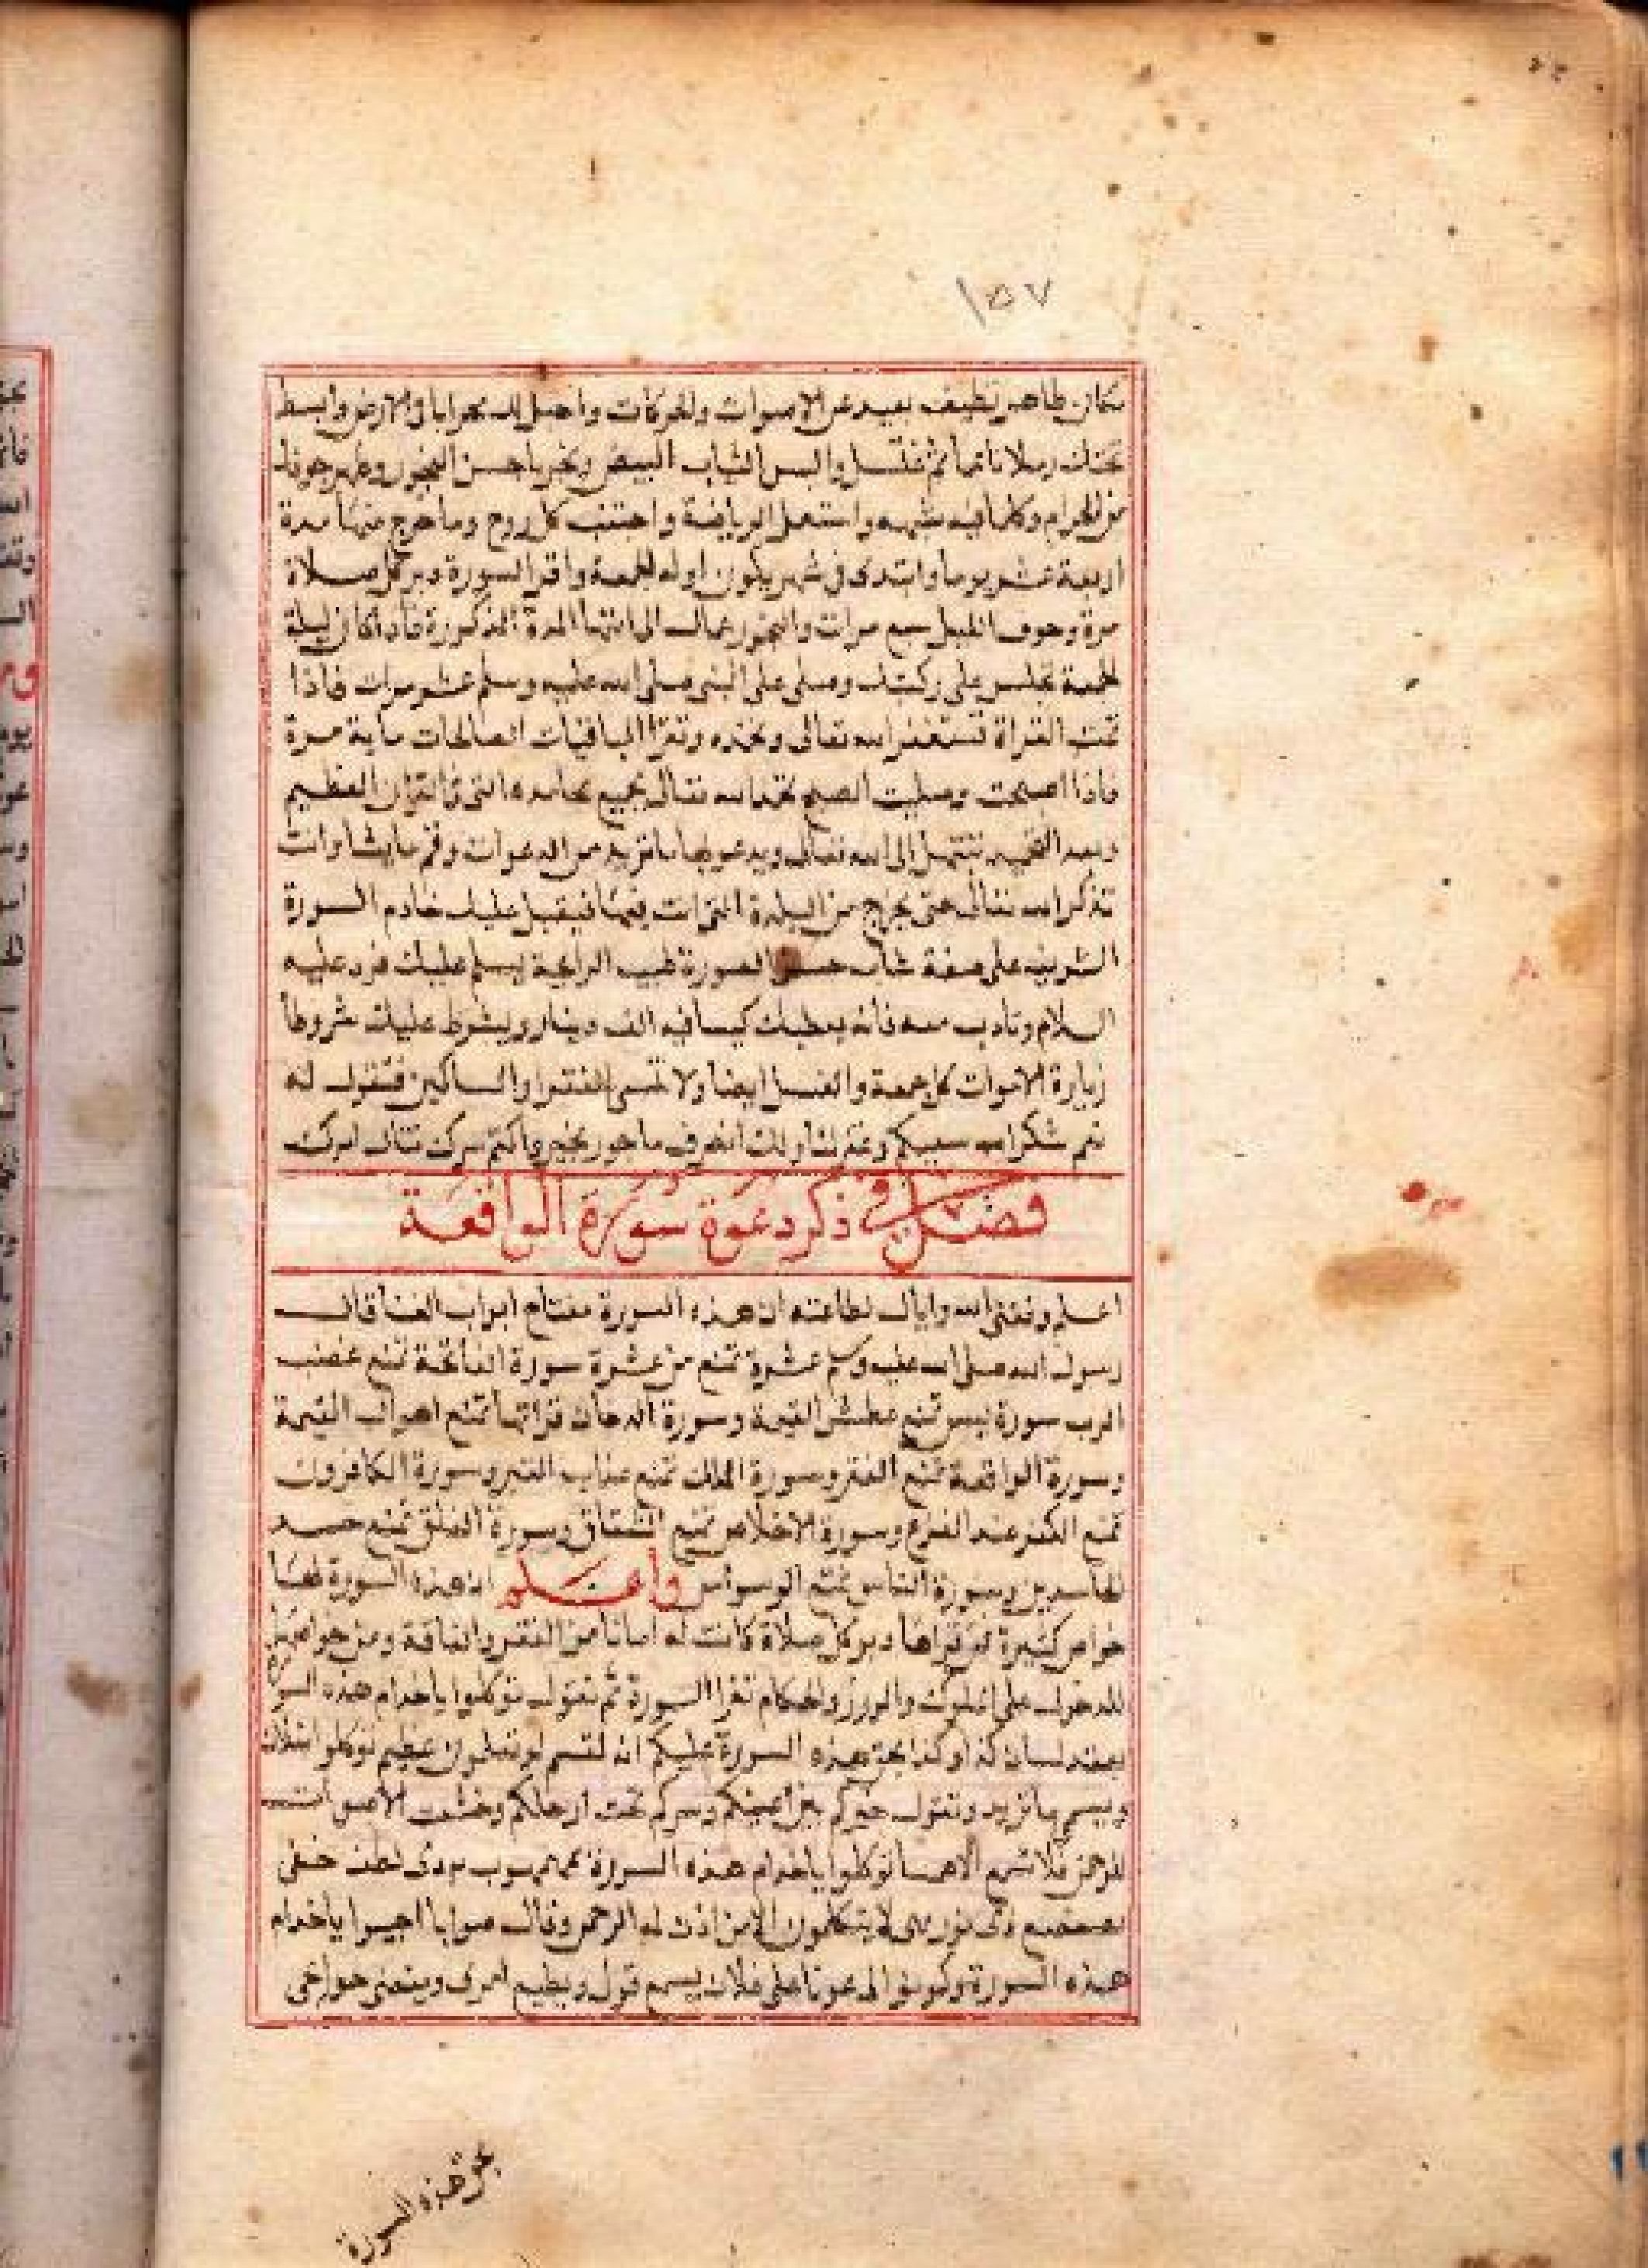 ١٥٧
مكان طاهر نظيف بعيد عن الاصوات والحركات واجعل لك محرابا في الارض وابسط
تحتك رملا ناعما ثم تغتسل والبس الثياب البيض وبخر باحسن البخور وطهر جوفك
من الحرام وكلما فيه شبهه واستعمل الرياضة واجتنب كل روح وما خرج منها مدة
اربعة عشر يوما وابتدى في شهر يكون اوله الجمعة واقرا السورة دبر كل صلاة
مرة وجوف الليل سبع مرات والبخور عمال الى انتها المدة المذكورة فاذا كان ليلة
الجمعة تجلس على ركبتيك وصلى على النبي صلى الله عليه وسلم عشر مرات فاذا
تمت القراة تستغفر الله تعالى وتحمده وتقرا الباقيات الصالحات ماية مرة
فاذا اصبحت وصليت الصبح تحمد الله تعالى بجميع محامده التي في القران العظيم
وبعد التحميد تبتهل إلى الله تعالى ويدعو بما تريد من الدعوات وقم ماشيا وانت
تذكر الله تعالى حتى تخرج من البلدة التي انت فيها فيقبل عليك خادم السورة
الشريفه على صفة شاب حسن الصورة طيب الرايحة يسلم عليك فرد عليه
السلام وتادب معه فانه يعطيك كيسا فيه الف دينار ويشرط عليك شروطا
زيارة الاموات كل جمعة والغسل ايضا ولا تنسى الفقرا والمساكين فتقول له
نعم شكر الله سعيكم وغفر لنا ولك انصرف ماجور بخير واكتم سرك تنال امرك
فصل في ذكر دعوة سورة الواقعة
اعلم وفقني الله واياك لطاعته ان هذه السورة مفتاح ابواب الغنا قال
رسول الله صلى الله عليه وسلم عشرة تمنع من عشرة سورة الفاتحة تمنع غضب
الرب سورة يس تمنع عطش القيمة وسورة الدخان قراتها تمنع اهوال القيمة
وسورة الواقعة تمنع الفقر وسورة الملك تمنع عذاب القبر وسورة الكافرون
تمنع الكفر عند الفزع وسورة الاخلاص تمنع النفاق وسورة الفلق تمنع حسد
الحاسدين وسورة الناس تمنع الوسواس واعلم ان هذه السورة لها
خواص كثيرة فمن قراها دبر كل صلاة كانت له امانا من الفقر والفاقة ومن خواصها
للدخول على الملوك والوزر والحكام تقرا السورة ثم تقول توكلوا ياخدام هذه السورة
بعقد لسان كذا وكذا بحق هذه السورة عليكم انه لقسم لو تعلمون عظيم توكلوا
وبسم ما تريد وتقول خيركم بين اعينكم وشركم تحت ارجلكم وخشعت الاصوات
للرحمن فلا تسمع الا همسا توكلوا ياخدام هذه السورة
لا يتكلمون الا من اذن له الرحمن وقال صوابا اجيبوا ياخدام
هذه السورة وكونوا لى عونا على فلان يسمع قولي ويطيع امرى ويقضى حوايجي
بحق هذه السورة